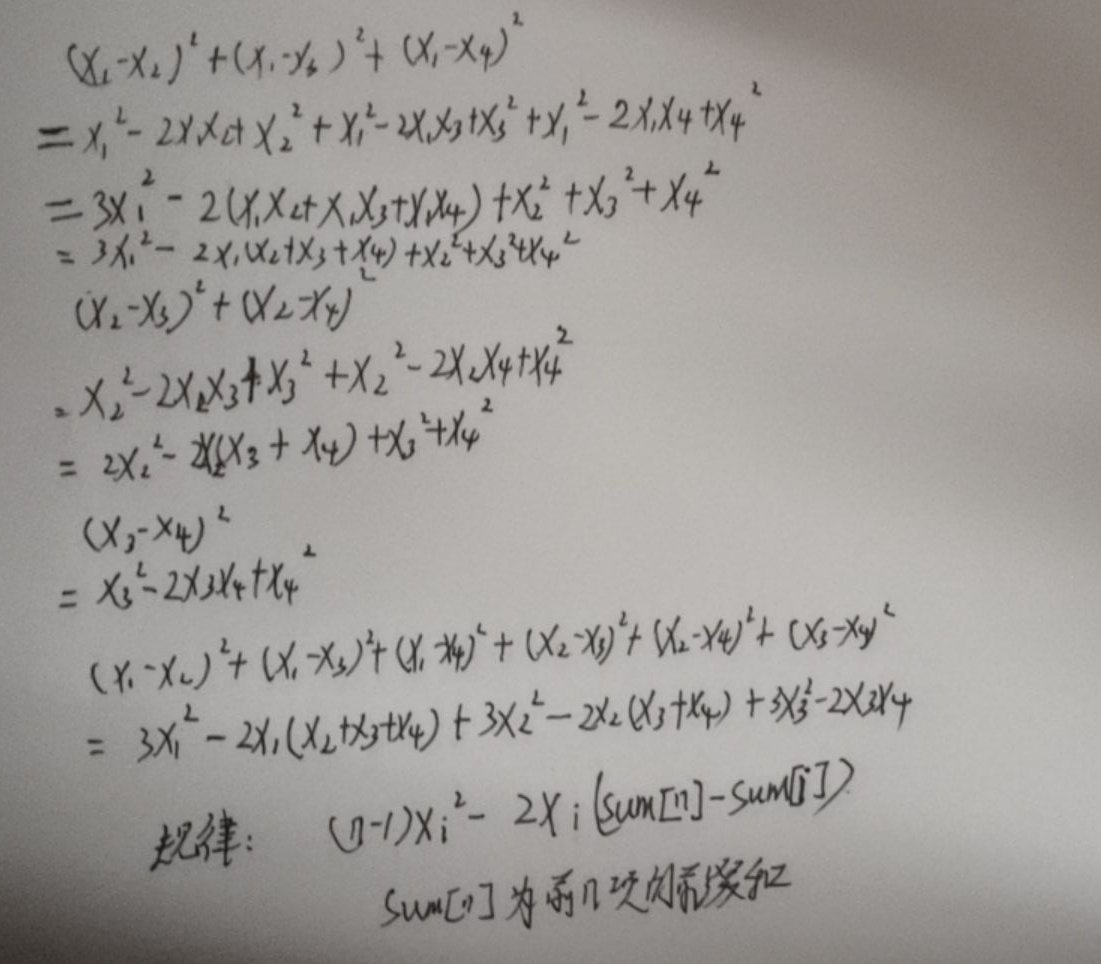 (x₁-x₂)²+(x₁-x₃)²+(x₁-x₄)²
=x₁²-2x₁x₂+x₂²+x₁²-2x₁x₃+x₃²+x₁²-2x₁x₄+x₄²
=3x₁²-2(x₁x₂+x₁x₃+x₁x₄)+x₂²+x₃²+x₄²
=3x₁²-2x₁(x₂+x₃+x₄)+x₂²+x₃²+x₄²
(x₂-x₃)²+(x₂-x₄)²
=x₂²-2x₂x₃+x₃²+x₂²-2x₂x₄+x₄²
=2x₂²-2x₂(x₃+x₄)+x₃²+x₄²
(x₃-x₄)²
=x₃²-2x₃x₄+x₄²
(x₁-x₂)²+(x₁-x₃)²+(x₁-x₄)²+(x₂-x₃)²+(x₂-x₄)²+(x₃-x₄)²
=3x₁²-2x₁(x₂+x₃+x₄)+3x₂²-2x₂(x₃+x₄)+3x₃²-2x₃x₄
规律: (n-1)xᵢ²-2xᵢ(sum[n]-sum[i])
sum[n]为前n项的前缀和